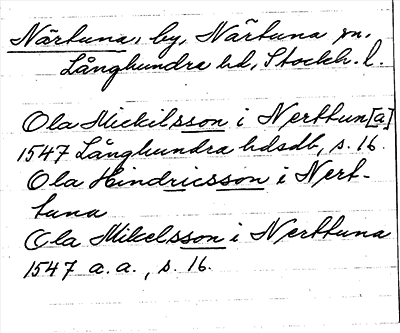 Närtuna, by, Närtuna sn,
Långhundra hd, Stockh. l.
Ola Mickilsson i Nerttun[a]
1547 Långhundra hdsdb, s. 16.
Ola Hindricsson i Nert-
tuna
Ola Mikelsson i Nerttuna
1547 a.a., s. 16.